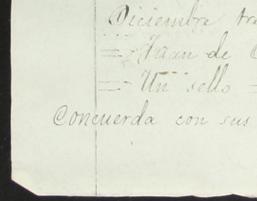 Diciembre tra
== Juan de
== Un sello =
Concuerda con sus